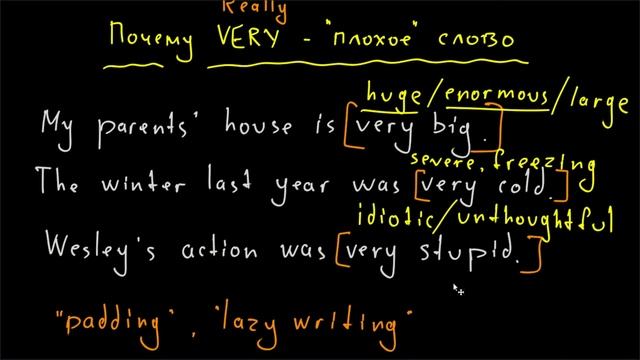 Really
Почему VERY - "плохое" слово
huge/enormous/large
My parents' house is [very big.]
severe, freezing
The winter last year was [very cold.]
idiotic/unthoughtful
Wesley's action was [very stupid.]
"padding", "lazy writing"